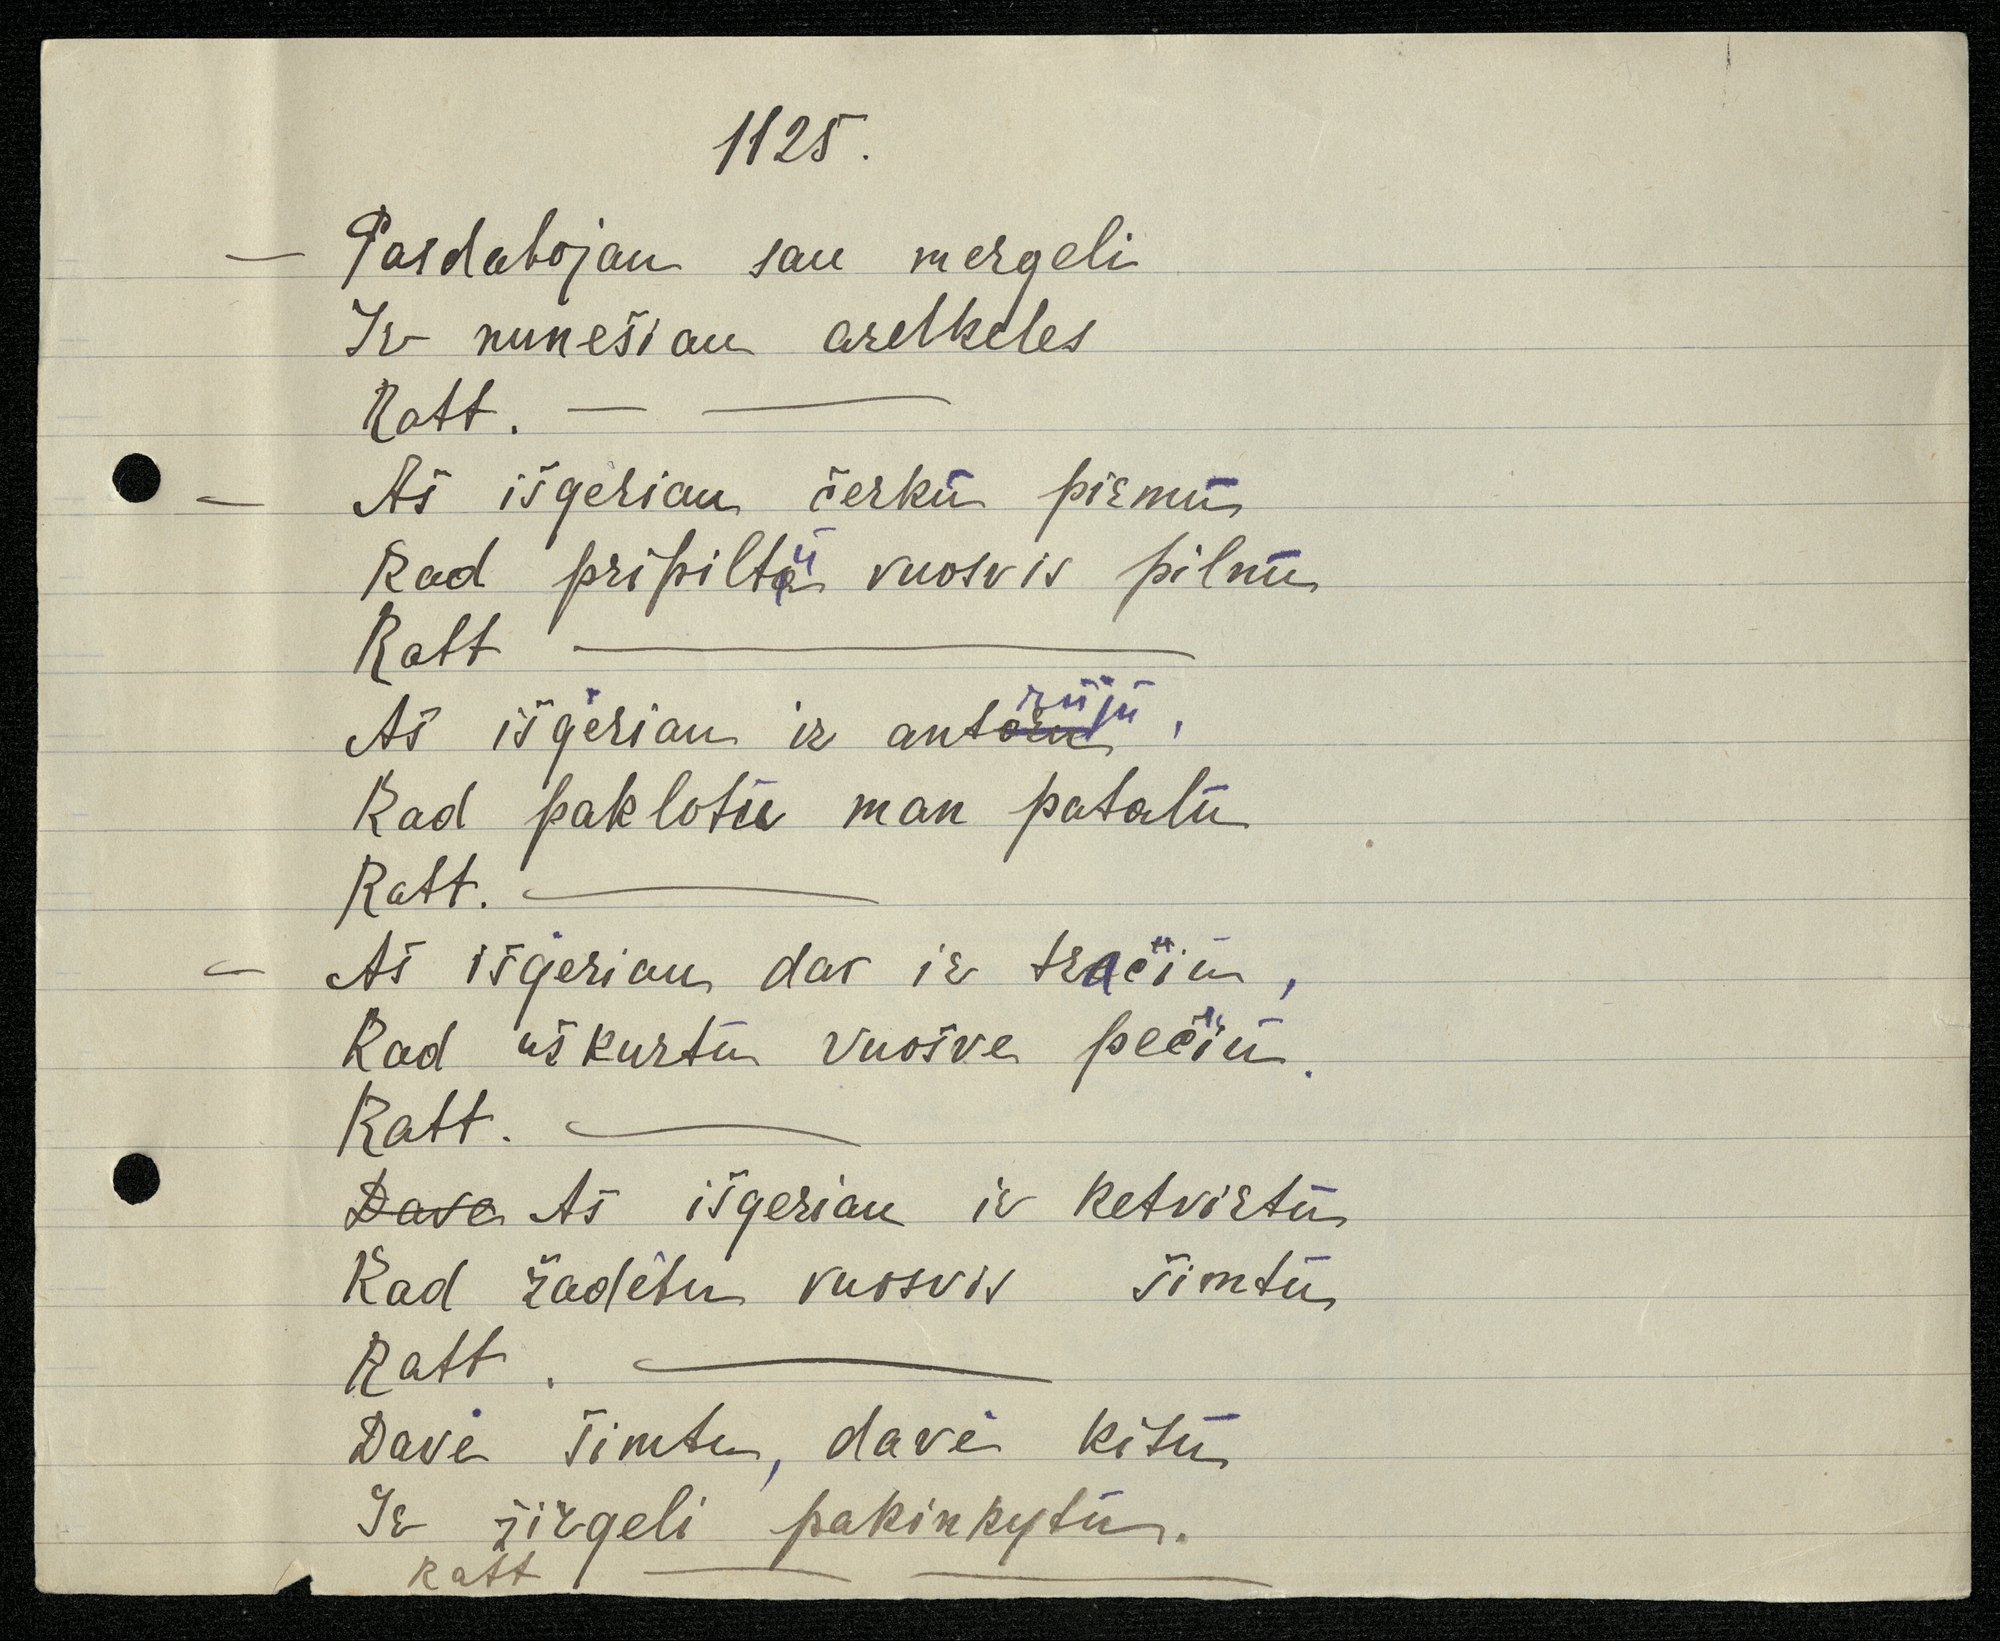 1125.
— Pasdabojau sau mergeli
Ir nunešiau arelkeles
Ratt. — —
— Aš išgėriau čerkū pirmū
Kad pripiltū vuosvis pilnū
Ratt —
Aš išgėriau ir antorūjū,
Kad paklotū man patalū
Ratt. —
— Aš išgėriau dar ir tračiū,
Kad uškurtū vuošve pečiū.
Ratt. —
Dave Aš išgeriau ir ketvirtū
Kad žadėtu vuosvis šimtū
Ratt. —
Davė šimtu, davė kitū
Ir žirgeli pakinkytū.
Ratt — —